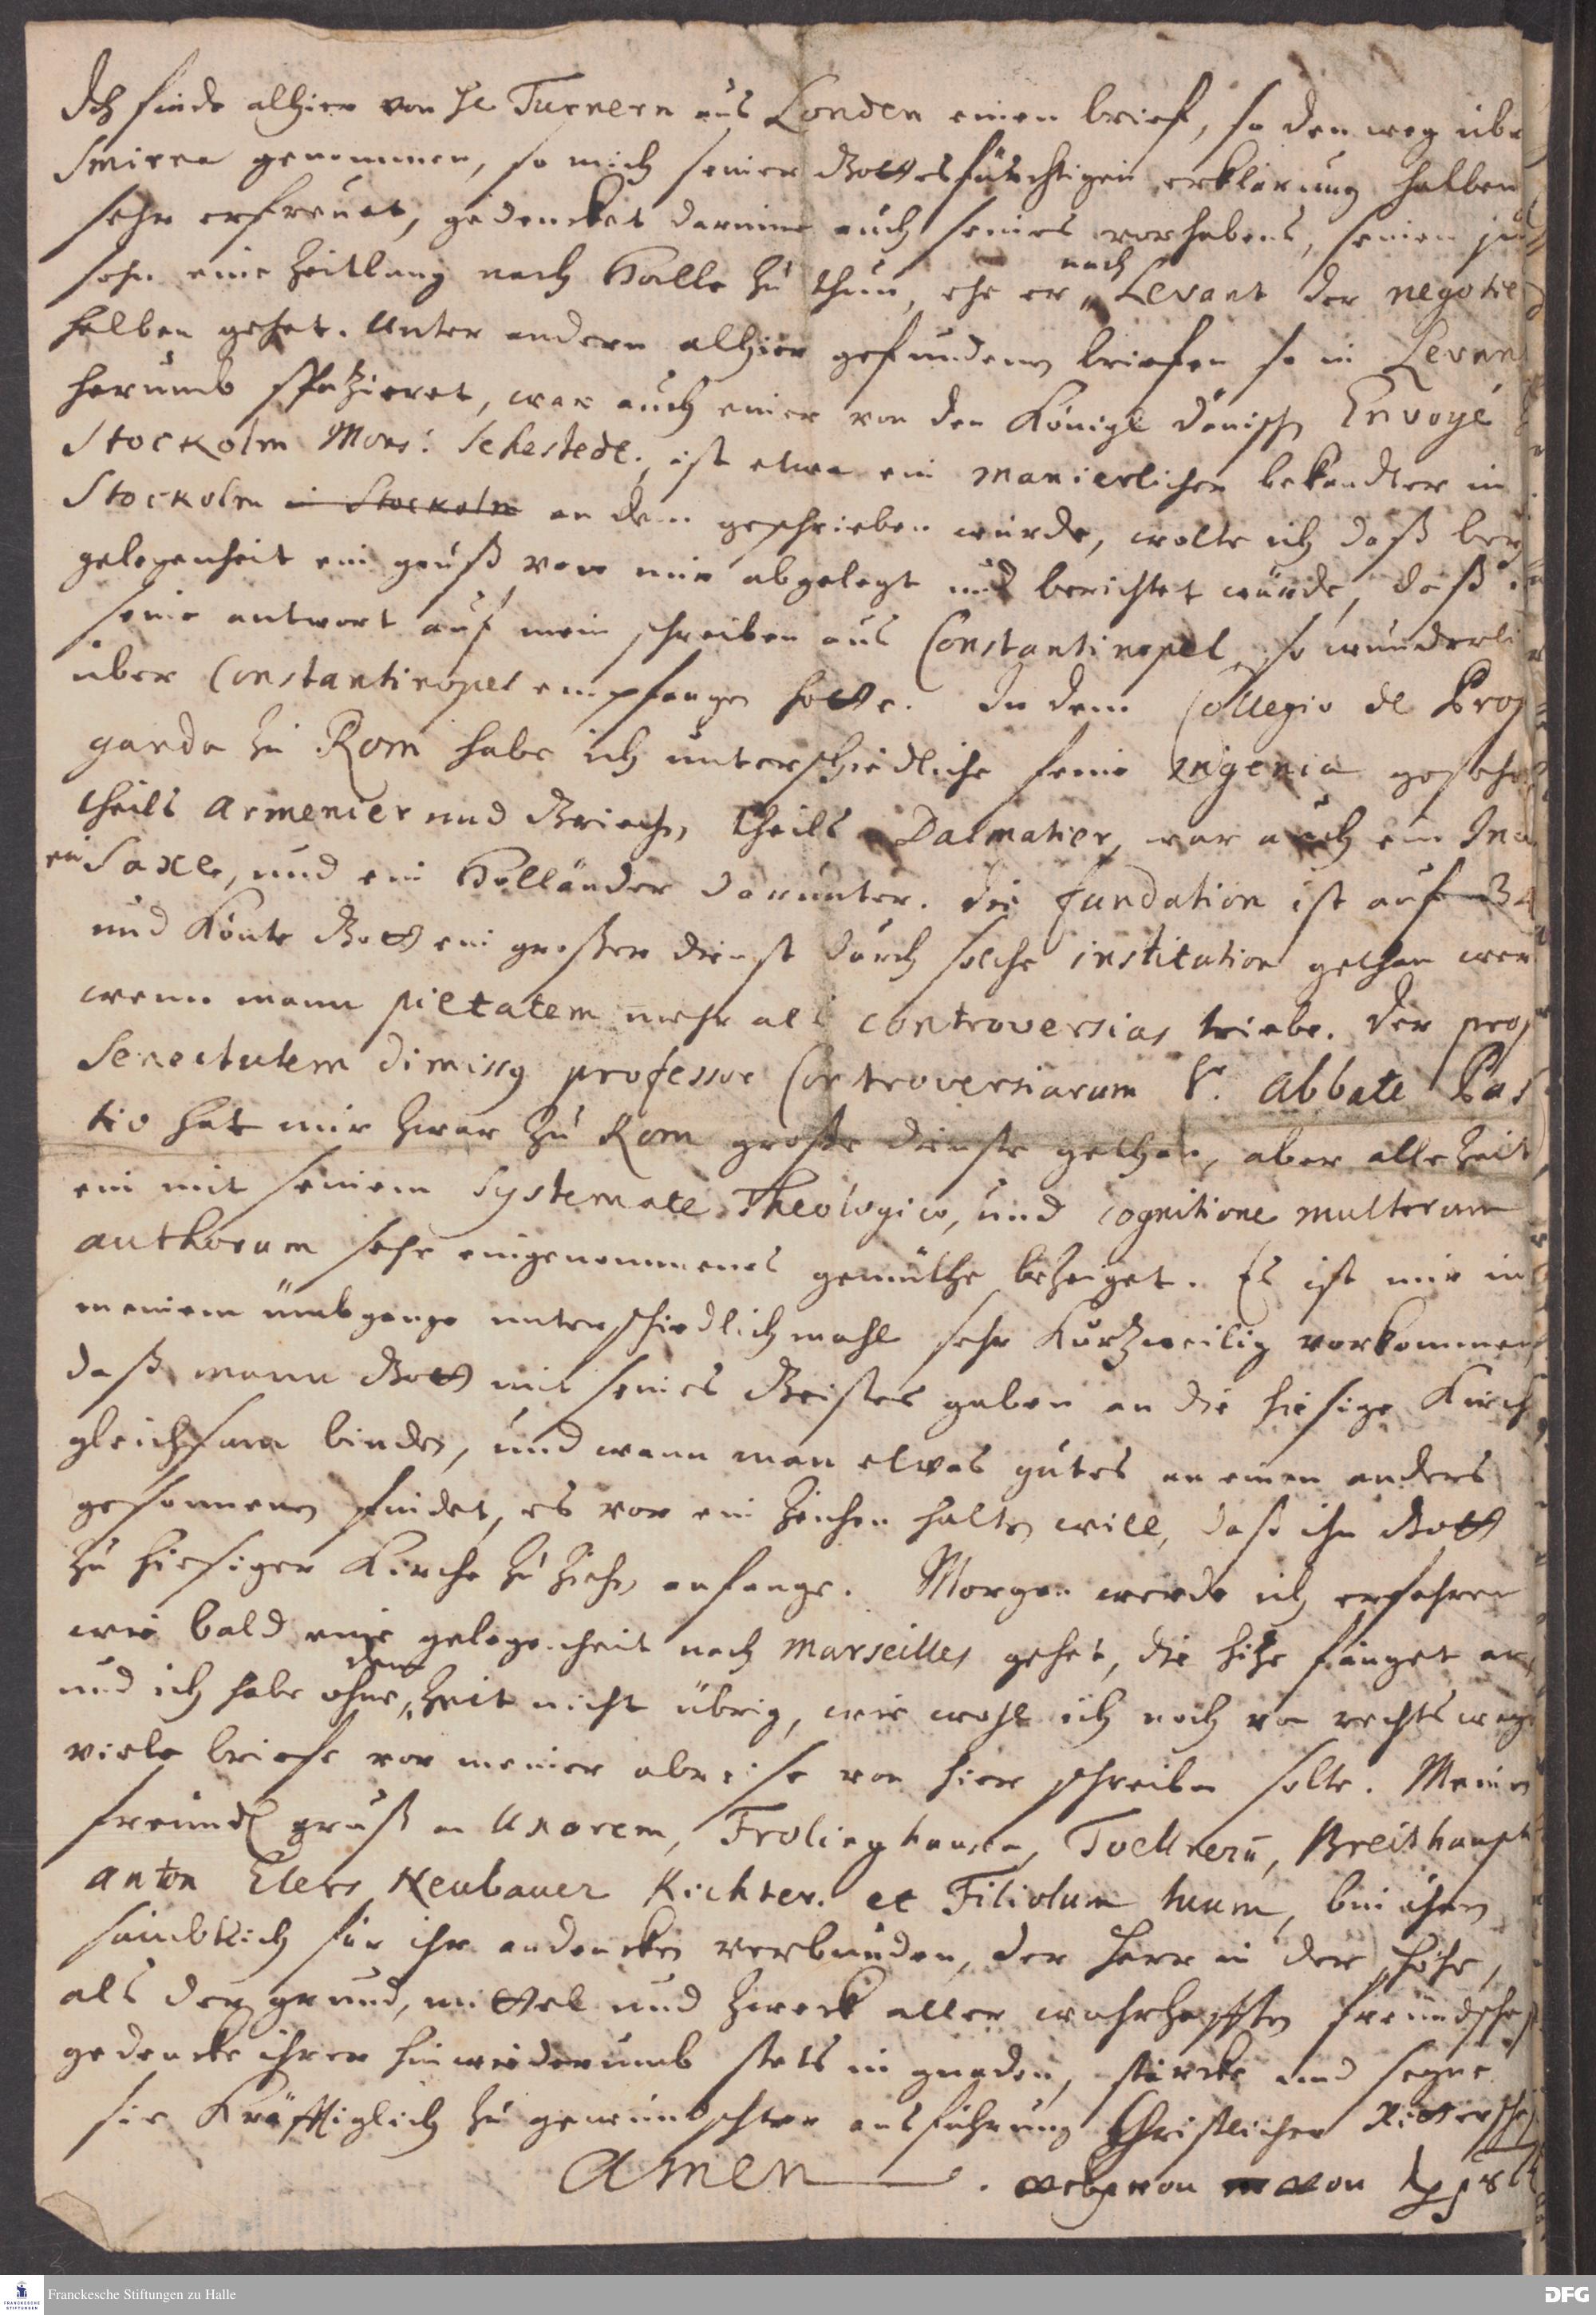 Ich finde alhier von He Turnern aus Londen einen brief, so den weg übe
Smirna genommen, so mich seiner Gottesfürchtigen erklärung halben
sehr erfreuet, gedencket darinne auch seines vorhabens, seinen
sohn eine Zeitlang nach Halle zu thun, ehe er nach Levant der negotie
halben gehet. Unter andern alhier gefundenen briefen so in Levan
herumb spatzieret, war auch einer von den Königl dänischn Envoyé
Stockolm Mons: Schestedt, ist etwa ein manierlicher bekandter in
Stockolm in Stockolm an den geschrieben würde, wolte ich daß bey
gelegenheit ein gruß von mir abgelegt und berichtet würde, daß
seine antwort auf mein schreiben aus Constantinopel so wunderli
über Constantinopel empfangen hette. In dem Collegio de Prop
ganda zu Rom habe ich unterschiedliche feine ingenia gesehe
theils Armenier und Griechn, theils Dalmatier, war auch ein Ind
ein Saxe, und ein Holländer darunter. Die fundation ist auf
und könte Gott ein großer dienst durch solche institution gethan wer
wenn mann pietatem mehr als controversias triebe. Der prop
Senectutem dimissus professor Controversiarum Hr. Abbate Pas
tio hat mir zwar zu Rom große dienste gethan, aber alle Zeit
ein mit seinem Systemate Theologico, und cognitione multorum
authorum sehr eingenommenes gemüthe bezeiget. Es ist mir in
meinem ümbgange unterschiedlich mahl sehr kurtzweilig vorkommen
daß mann Gott mit seines Geistes gaben an die hiesige Kirch
gleichsam binden, und wann man etwas gutes an einen anders
gesonnenen findet, es vor ein Zeichen halten will, daß ihn Gott
zu hiesiger Kirche zu ziehn anfange. Morgen werde ich erfahren
wie bald eine gelegenheit nach Marseilles gehet, die hitze fänget an
und ich habe ohne dem Zeit nicht übrig, wie wohl ich noch von rechts wegn
viele briefe vor meiner abreise von hier schreiben solte. Meinen
freundl gruß an Uxorem, Frolinghausen, Toellnerū, Breithaupt
Anton Elers Neubauer Richter. et Filiolum tuum, bin ihnen
sämbtlich für ihr andencken verbunden, der Herr in der Höhe,
als der grund, mittel und Zweck aller wahrhafften freundschaf
gedencke ihrer hinwiederumb stets in gnaden, stärcke und segne
sie kräfftiglich zu gewünschter ausführung Christlicher Ritterschaf
Amen
Franckesche Stiftungen zu Halle
FRANCKESCHE STIFTUNGEN
DFG